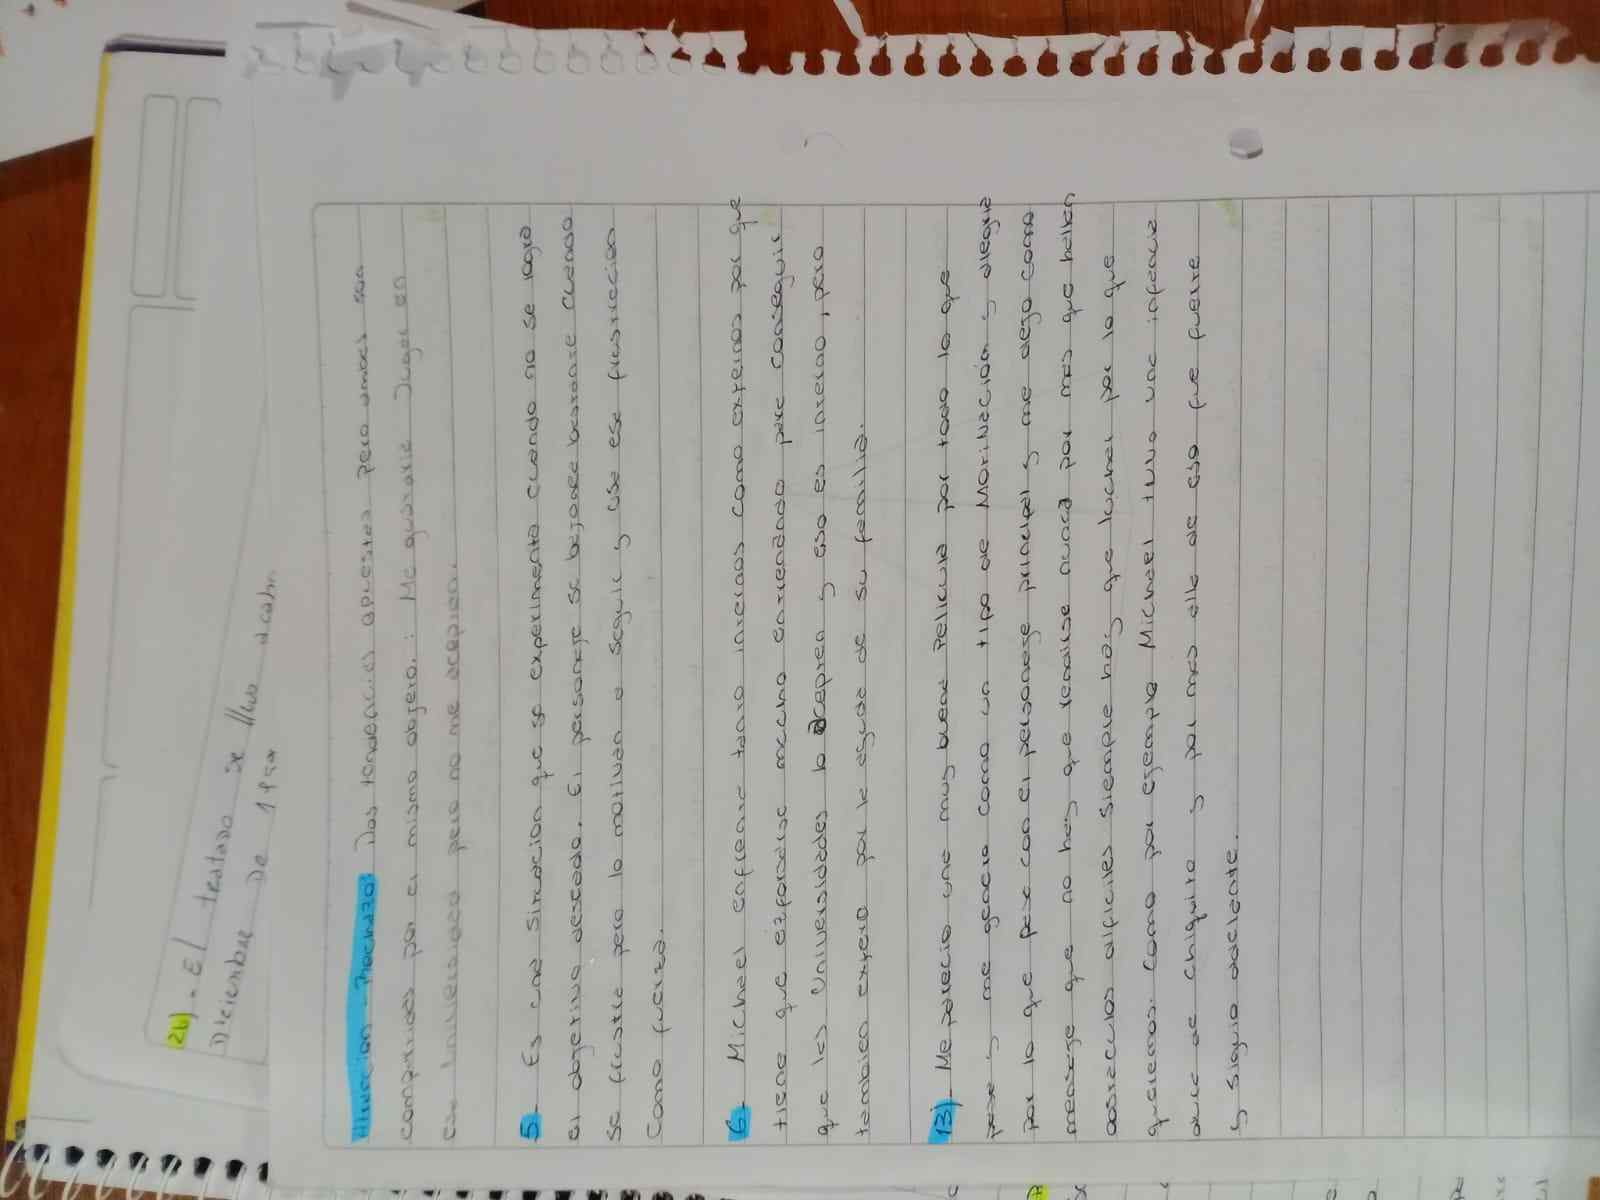 26).- El tratado se llevo acabo
Diciembre De 19
Atraccion-Rechazo: Dos tendencias apuestas pero ambas son
compartidas por el mismo objeto.: Me gustaria Jugar en
esa Universidad pero no me aceptan.
5- Es una situacion que se experimenta cuando no se logra
el objetivo deseado. El personaje se bajonea bastante cuando
se frustra pero lo motivan a seguir y usa esa frustracion
como fuerza.
6- Michael enfrenta tanto internos como externos por que
tiene que esforzarse mucho entrenando para conseguir
que las Universidades lo acepten y eso es interno, pero
tambien externo por la ayuda de su familia.
13) Me parecio una muy buena Pelicula por todo lo que
pasa y me genero como un tipo de Motivación y alegria
por lo que pasa con el personaje principal y me dejo como
mensaje que no hay que rendirse nunca por mas que hallan
obstaculos dificiles siempre hay que luchar por lo que
queremos. Como por ejemplo Michael tuvo una infancia
dura de chiquito y por mas alla de eso fue fuerte
y siguio adelante.